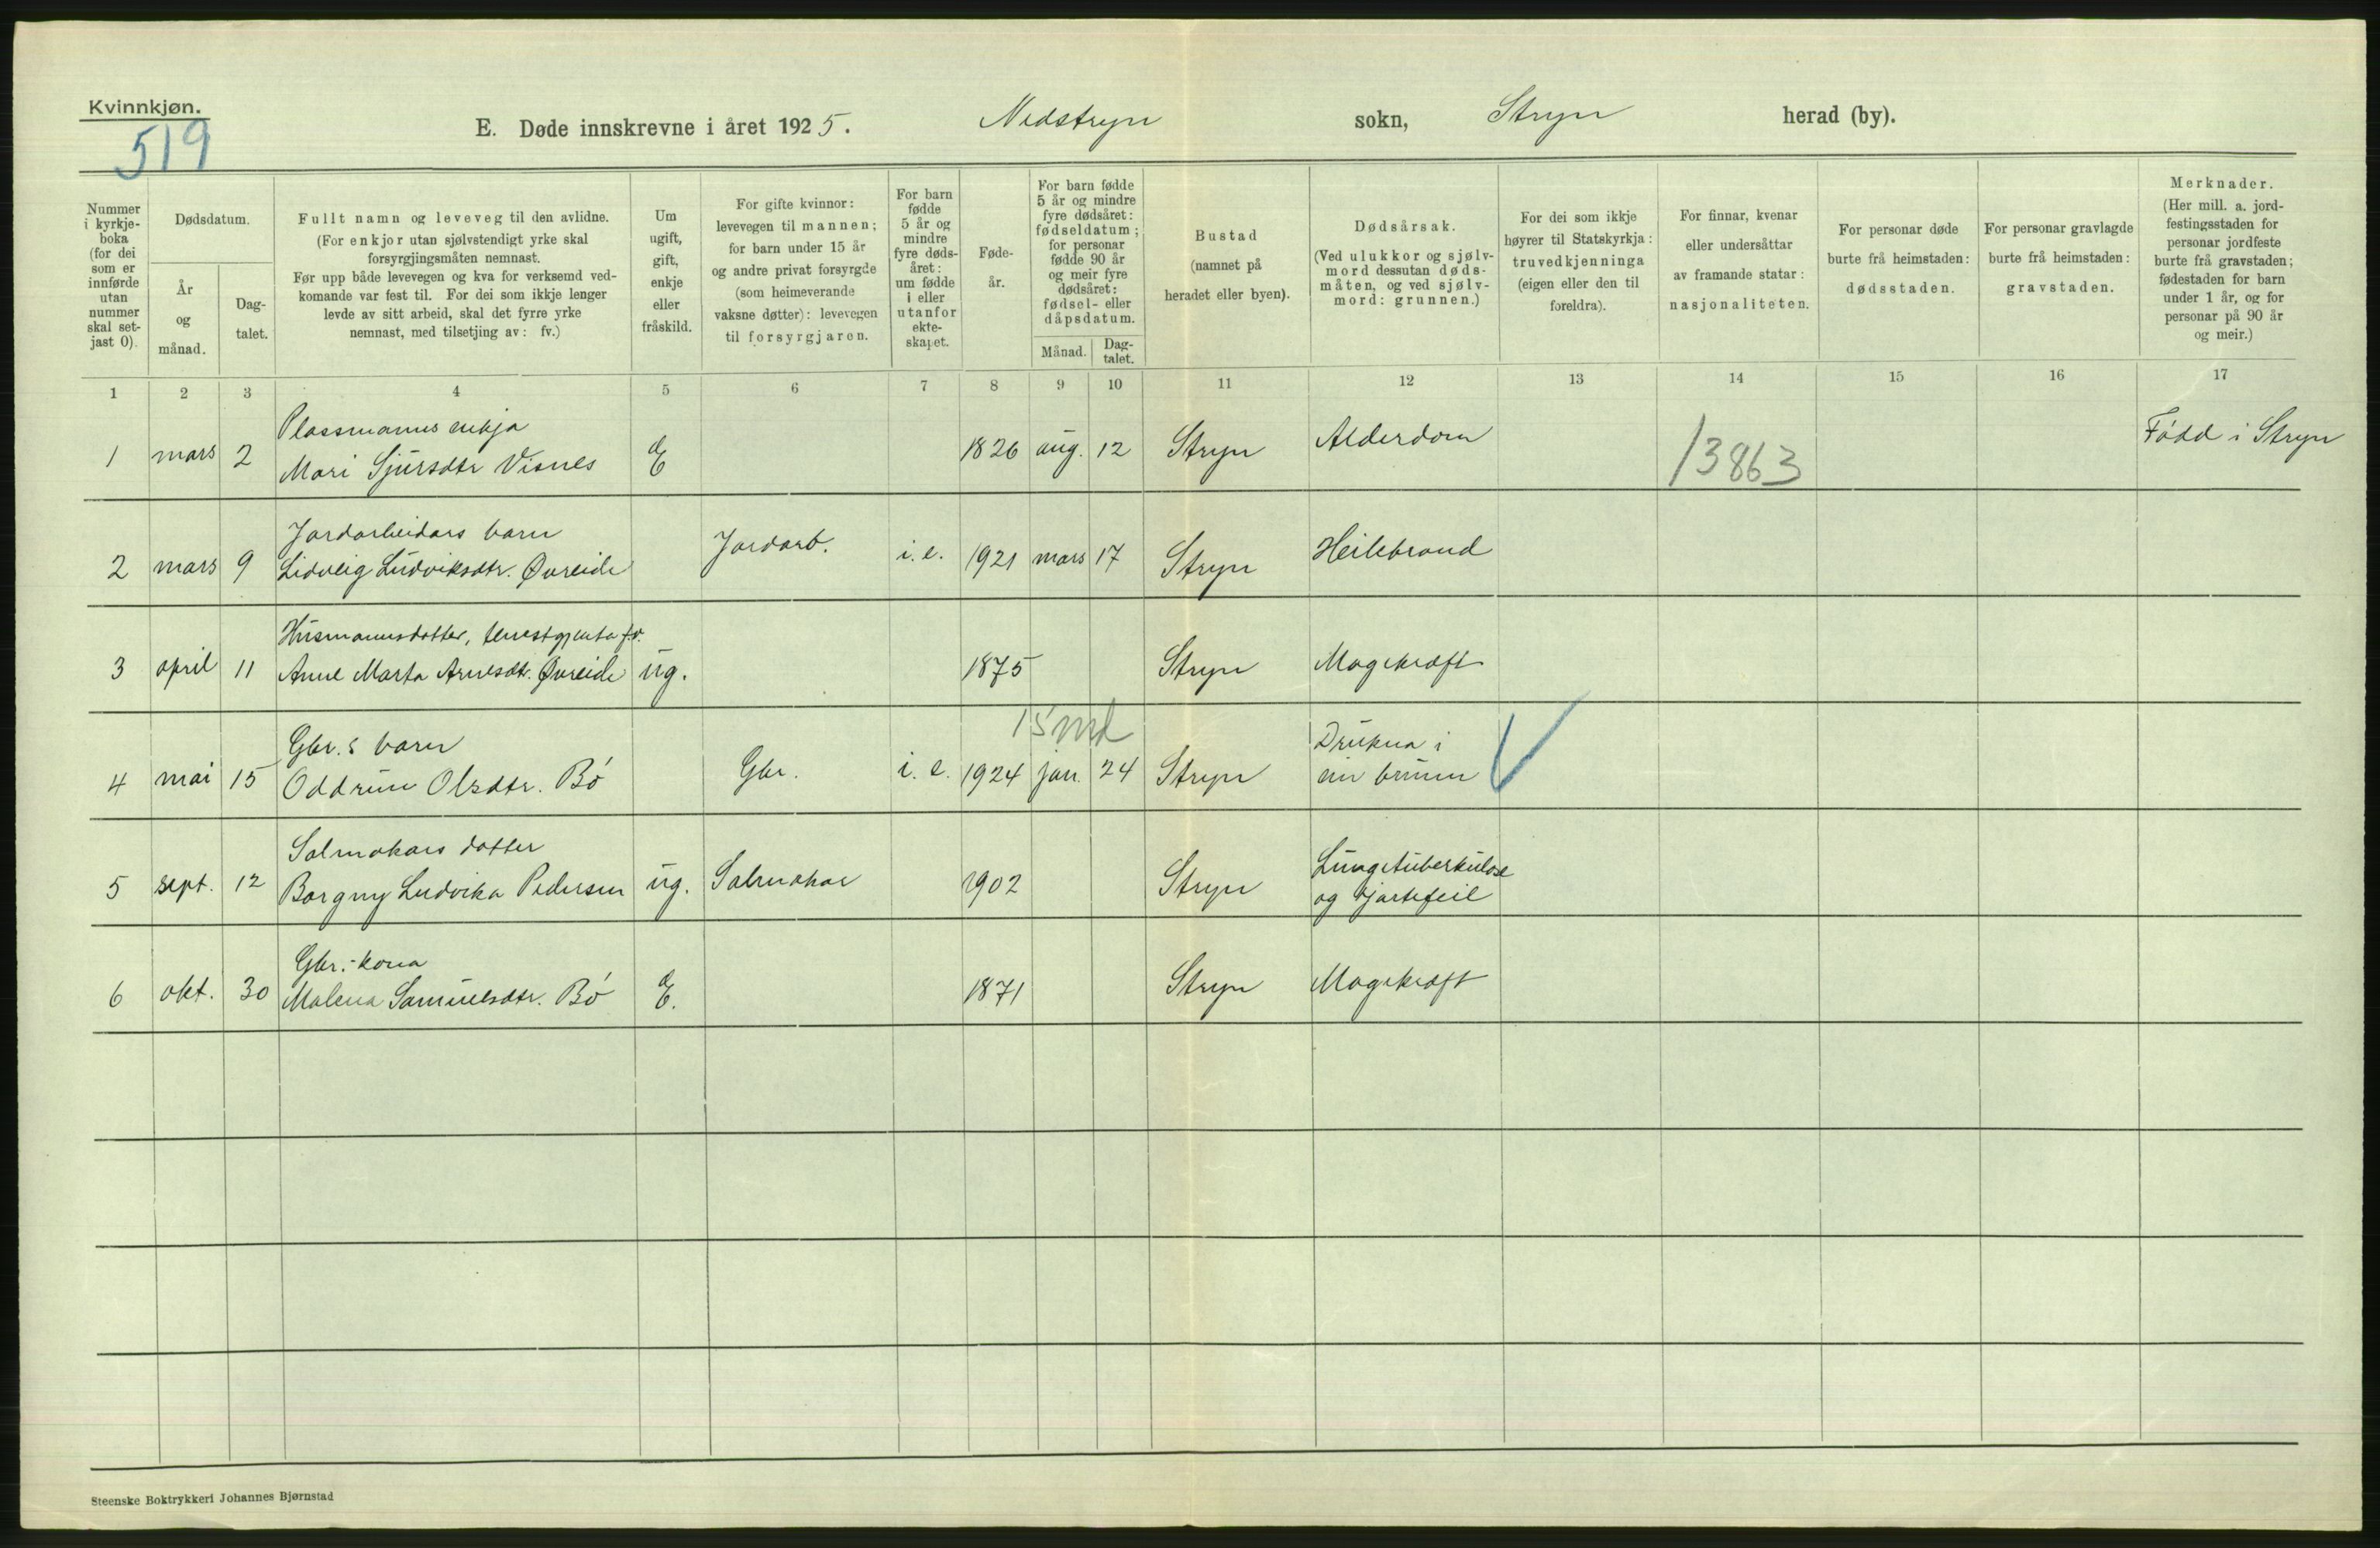 Kvinnkjøn.
519
E. Døde innskrevne i året 1925. Nedstryn sokn, Stryn herad (by).
Nummer i kyrkje-boka (for dei som er innførde utan nummer skal set-jast 0).
Dødsdatum.
År og månad.
Dag-talet.
Fullt namn og leveveg til den avlidne.
(For enkjor utan sjølvstendigt yrke skal forsyrgjingsmåten nemnast.
Før upp både levevegen og kva for verksemd ved-komande var fest til. For dei som ikkje lenger levde av sitt arbeid, skal det fyrre yrke nemnast, med tilsetjing av: fv.)
Um ugift, gift, enkje eller fråskild.
For gifte kvinnor: levevegen til mannen; for barn under 15 år og andre privat forsyrgde (som heimeverande vaksne døtter): levevegen til forsyrgjaren.
For barn fødde 5 år og mindre fyre døds-året: um fødde i eller utanfor ekte-skapet.
Føde-år.
For barn fødde 5 år og mindre fyre dødsåret: fødseldatum; for personar fødde 90 år og meir fyre dødsåret: fødsel- eller dåpsdatum.
Månad.
Dag-talet.
Bustad (namnet på heradet eller byen).
Dødsårsak.
(Ved ulukkor og sjølv-mord dessutan døds-måten, og ved sjølv-mord: grunnen.)
For dei som ikkje høyrer til Statskyrkja: truvedkjenninga (eigen eller den til foreldra).
For finnar, kvenar eller undersåttar av framande statar: nasjonaliteten.
For personar døde burte frå heimstaden: dødsstaden.
For personar gravlagde burte frå heimstaden: gravstaden.
Merknader.
(Her mill. a. jord-festingsstaden for personar jordfeste burte frå gravstaden; fødestaden for barn under 1 år, og for personar på 90 år og meir.)
1 2 3 4 5 6 7 8 9 10 11 12 13 14 15 16 17
Plassmanns enkja
1 mars 2 Mari Sjursdtr Visnes E 1826 aug. 12 Stryn Alderdom 13863 Född i Stryn
Jordarbeidars barn
2 mars 9 Lidveig Ludviksdtr. Øvreide Jordarb. i. e. 1921 mars 17 Stryn Heilebrand
Husmannsdotter, tenestgjenta fv.
3 april 11 Anne Marta Arnesdtr. Øvreide ug. 1875 Stryn Magekræft
15 md
Gbr.s barn
4 mai 15 Oddrun Olsdtr. Bö Gbr. i. e. 1924 jan. 24 Stryn Drukna i
ein brunn
Salmakars dotter
5 sept. 12 Borgny Ludvika Pedersen ug. Salmakar 1902 Stryn Lungetuberkulose
og hjartefeil
Gbr.-kona
6 okt. 30 Malena Samuelsdtr. Bö E. 1871 Stryn Magekræft
Steenske Boktrykkeri Johannes Bjørnstad